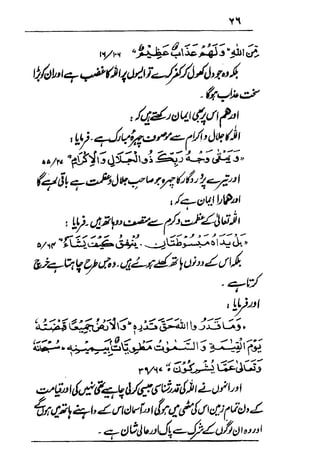 ۷۶
مِّنَ اللّٰهِ ۚ وَلَهُمْ عَذَابٌ عَظِيْمٌ ۱۰۶/۱۶
بلکہ وہ جو دل کھول کر کفر کرے تو ایسوں پر اللہ کا غضب ہے اور ان کو بڑا
سخت عذاب ہوگا۔
اور ہم اس پر بھی ایمان رکھتے ہیں کہ :
اللہ کا جلال و اکرام سے موصوف چہرۂ مبارک ہے۔ فرمایا :
وَيَبْقٰى وَجْهُ رَبِّكَ ذُو الْجَلٰلِ وَالْاِكْرَامِ ۲۷/۵۵
اور تیرے پروردگار کا چہرہ جو صاحب جلال و عظمت ہے باقی رہے گا
اور ہمارا ایمان ہے کہ :
اللہ تعالیٰ کے عظمت و کرم سے متصف دو ہاتھ ہیں۔ فرمایا :
بَلْ يَدَاهُ مَبْسُوْطَتَانِ ۔ يُنْفِقُ كَيْفَ يَشَاءُ ۶۴/۵
بلکہ اس کے دونوں ہاتھ کھلے ہوئے ہیں۔ وہ جس طرح چاہتا ہے خرچ
کرتا ہے۔
اور فرمایا :
وَمَا قَدَرُوا اللّٰهَ حَقَّ قَدْرِهٖ ۖ وَالْاَرْضُ جَمِيْعًا قَبْضَتُهٗ
يَوْمَ الْقِيٰمَةِ وَالسَّمٰوٰتُ مَطْوِيّٰتٌ بِيَمِيْنِهٖ ۚ سُبْحٰنَهٗ
وَتَعٰلٰى عَمَّا يُشْرِكُوْنَ ۶۷/۳۹
اور انہوں نے اللہ کی قدر شناسی جیسی کرنی چاہیے تھی نہیں کی اور قیامت
کے دن تمام زمین اس کی مٹھی میں ہوگی اور آسمان اس کے داہنے ہاتھ میں ہوں گے
اور وہ ان لوگوں کے شرک سے پاک اور عالی شان ہے۔